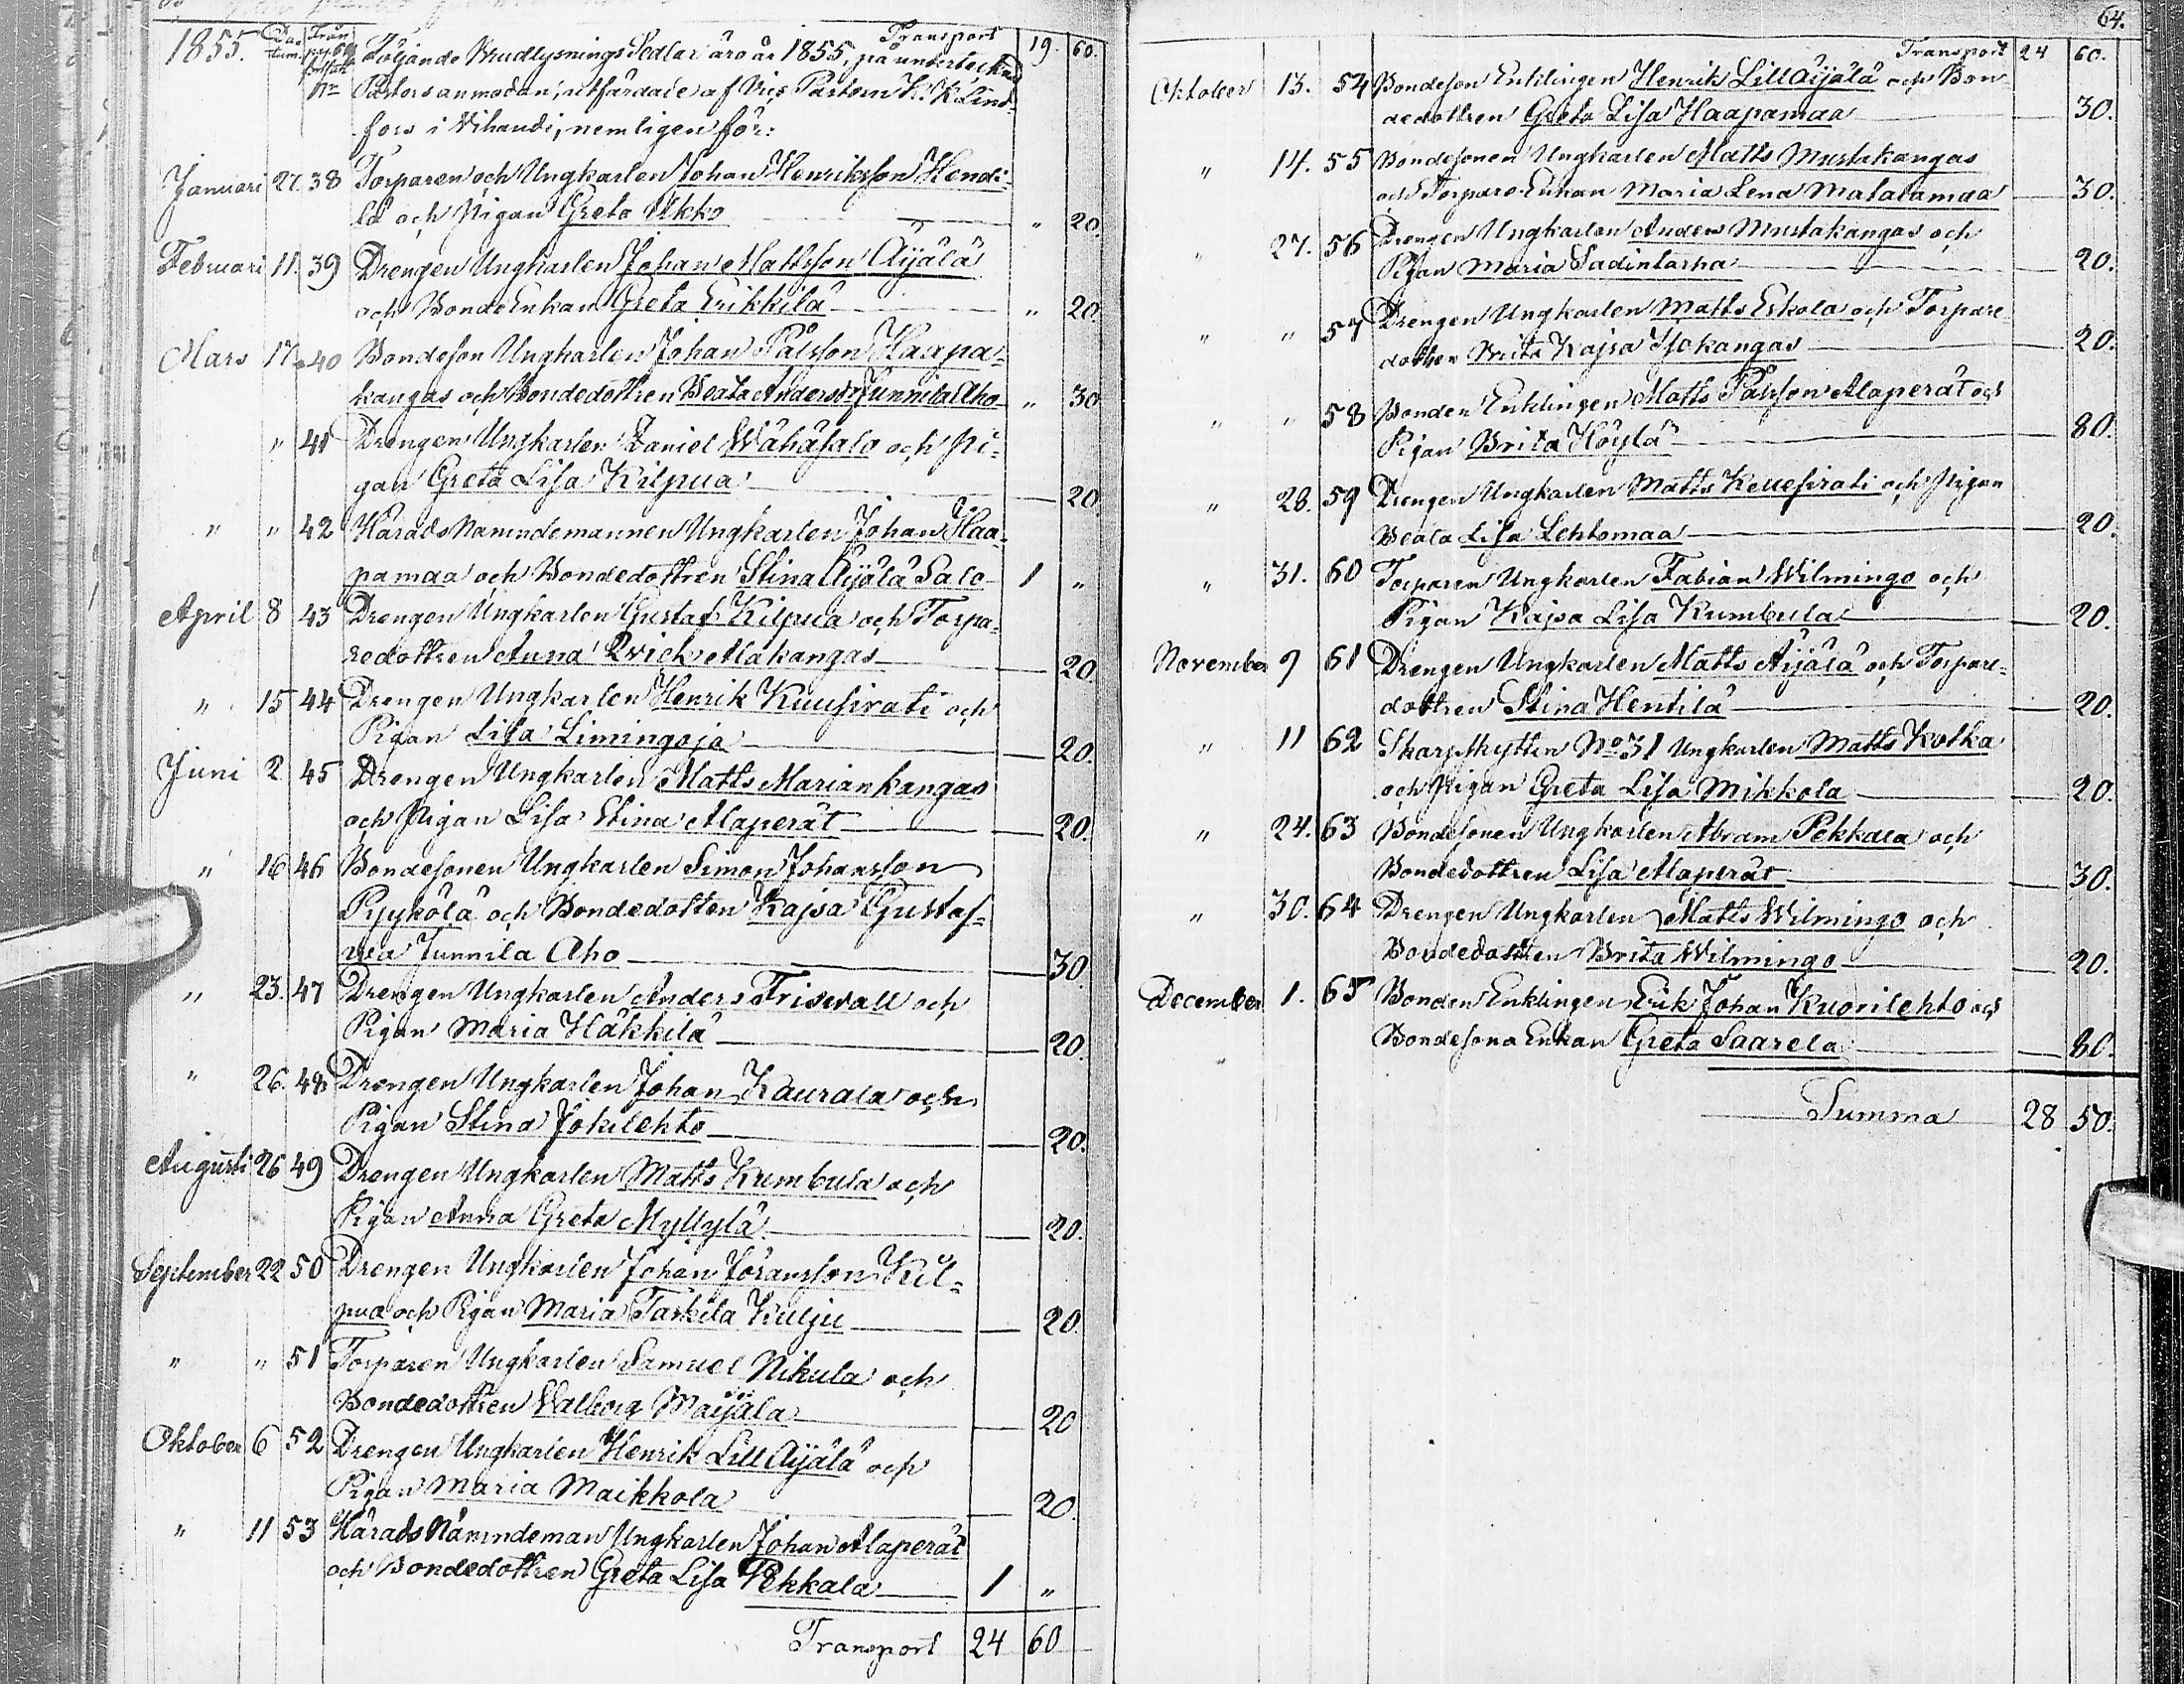 1855. Da- tum. Från Transport 19. 60.
Följande Brudlysnings Sedlar äro år 1855, på undertecknad
Nr Pastors anmodan, utfärdade af Vice Pastorn K. K. Lind-
fors i Vihandi, nemligen för:
Januari 27. 38 Torparen och Ungkarlen Johan Henriksson Hendi-
lä och Pigan Greta Ukko " 20.
Februari 11. 39 Drengen Ungkarlen Johan Mattsson Äijälä
och BondeEnkan Greta Erikkilä " 20
Mars 17. 40 Bondeson Ungkarlen Johan Pålsson Haapa-
kangas och Bondedottren Beata Andersdr Junnila Aho " 30
" 41 Drengen Ungkarlen Daniel Wähäsalo och Pi-
gan Greta Lisa Kilpua 20
" " 42 Härads Nämndemannen Ungkarlen Johan Haa-
pamaa och Bondedottren Stina Äijälä Salo 1 "
April 8 43 Drengen Ungkarlen Gustaf Kilpua och Torpa-
redottren Anna Qvick Alakangas 20
" 15 44 Drengen Ungkarlen Henrik Kuusirati och
Pigan Lisa Limingoja 20.
Juni 2 45 Drengen Ungkarlen Matts Mariankangas
och Pigan Lisa Stina Alaperät 20.
" 16 46 Bondesonen Ungkarlen Simon Johansson
Pyykölä och Bondedotten Kajsa Gustafs-
Junnila Aho 30.
" 23. 47 Drengen Ungkarlen Anders Friswall och
Pigan Maria Häkkilä 20.
" 26. 48 Drengen Ungkarlen Johan Kaurala och
Pigan Stina Jokilehto 20.
Augusti 26 49 Drengen Ungkarlen Matts Krumbula och
Pigan Anna Greta Myllylä 20.
September 22 50 Drengen Ungkarlen Johan Jöransson Kil-
pua och Pigan Maria Tarkila Kulju 20.
" " 51 Torparen Ungkarlen Samuel Nikula och
Bondedottren Walborg Maijala 20
Oktober 6 52 Drengen Ungkarlen Henrik Lill Äijälä och
Pigan Maria Maikkola 20.
" 11 53 Härads Nämndeman Ungkarlen Johan Alaperät
och Bondedottren Greta Lisa Pekkala 1 "
Transport 24 60
64.
Transport 24 60.
Oktober 13. 54 Bondeson Enklingen Henrik Lill Äijälä och Bon-
dedottren Greta Lisa Haapamaa 30.
" 14. 55 Bondesonen Ungkarlen Matts Mustakangas
och Torpare Enkan Maria Lena Matalamaa 30.
" 27. 56 Drengen Ungkarlen Anders Mustakangas och
Pigan Maria Sadintarha 20.
" " 57 Drengen Ungkarlen Matts Eskola och Torpare-
dotten Brita Kajsa Isokangas 20.
" " 58 Bonden Enklingen Matts Pålsson Alaperät och
Pigan Brita Höylä 80.
" 28. 59 Drengen Ungkarlen Matts Kuusirati och Pigan
Beata Lisa Lehtomaa 20.
" 31. 60 Torparen Ungkarlen Fabian Wilmingo och
Pigan Kajsa Lisa Kumbula 20.
November 9 61 Drengen Ungkarlen Matts Äijälä och Torpare-
dottren Stina Hentilä 20.
" 11 62 Skarpskytten No 31 Ungkarlen Matts Kotka
och Pigan Greta Lisa Mikkola 20.
" 24. 63 Bondesonen Ungkarlen Abram Pekkala och
Bondedottren Lisa Alaperät 30.
" 30. 64 Drengen Ungkarlen Matts Wilmingo och
Bondedotten Brita Wilmingo 20.
December 1. 65 Bonden Enklingen Erik Johan Kuorilehto och
Bondesons Enkan Greta Saarela 80.
Summa 28 50.